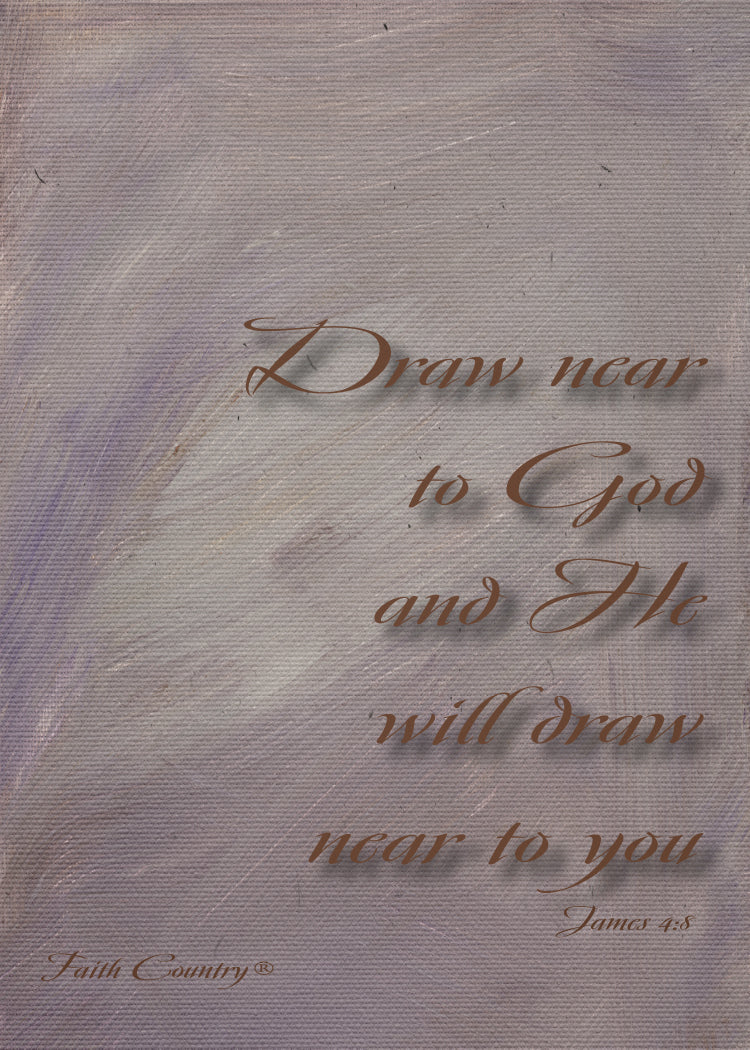 Draw near
to God
and He
will draw
near to you
James 4:8
Faith Country®